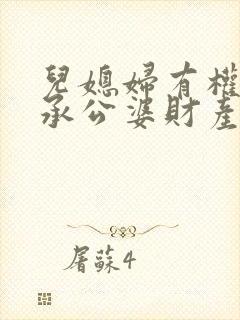 兒媳婦有權
承公婆財產
屠蘇4